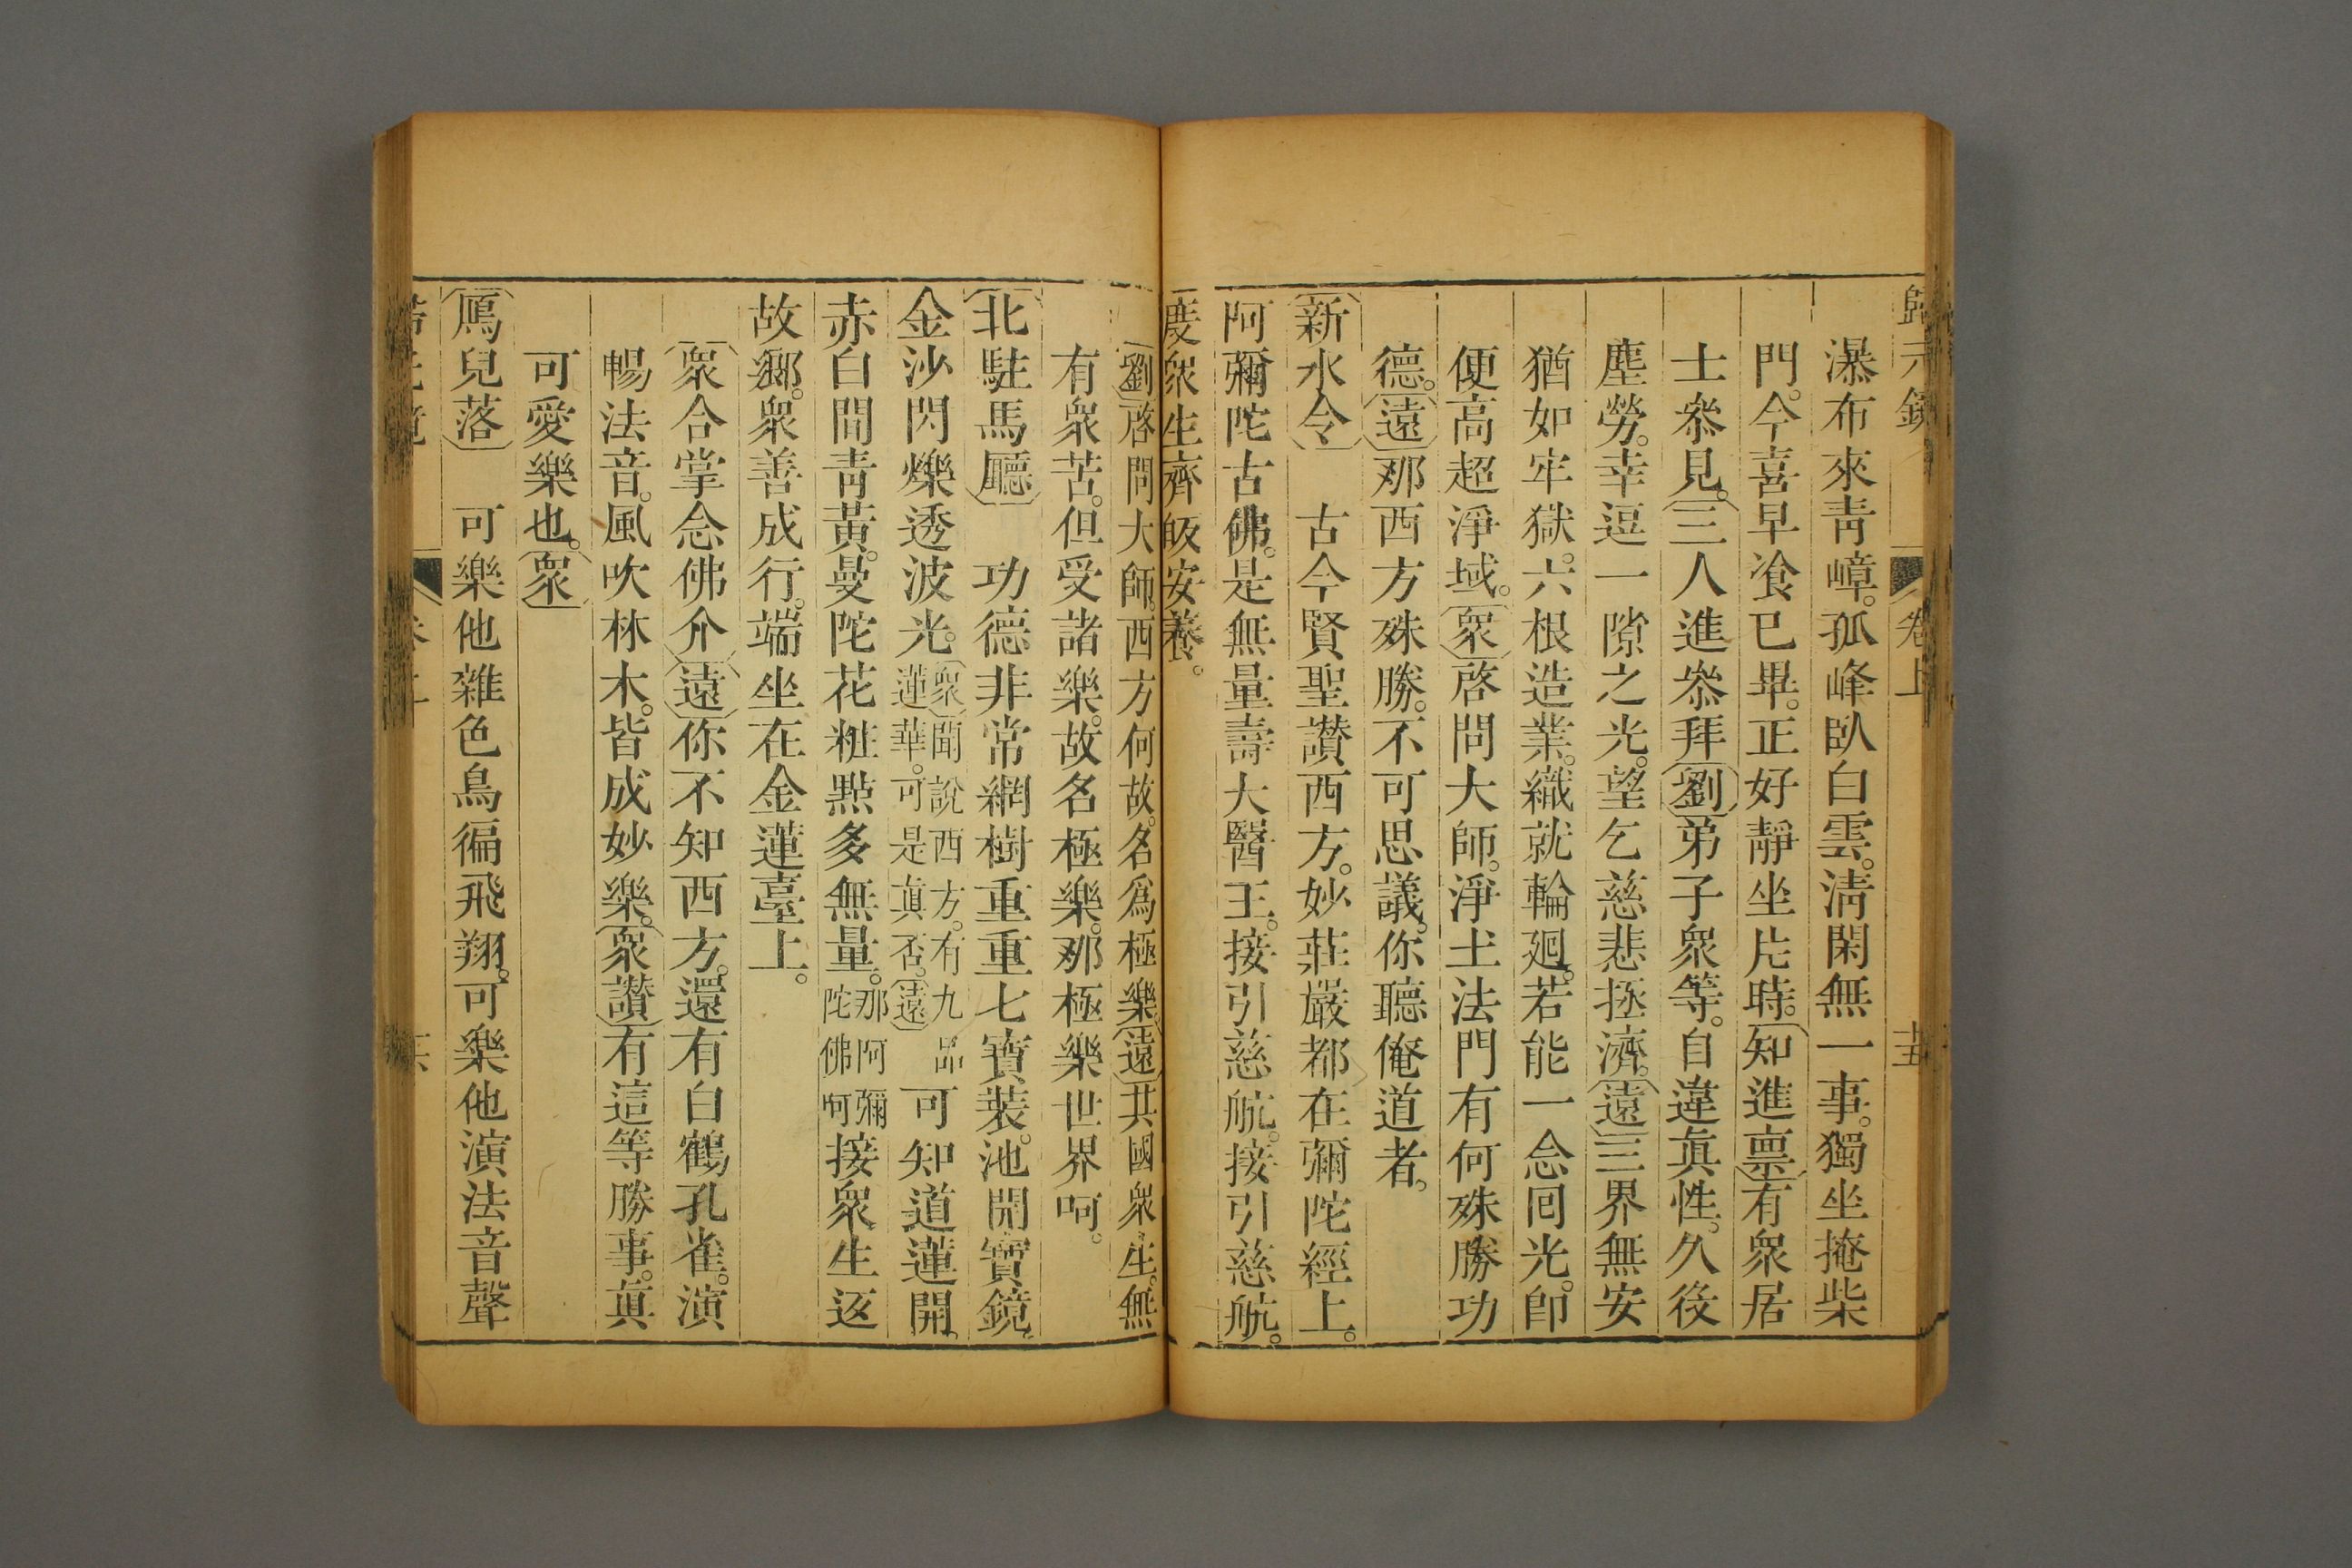 歸元鏡 卷上 十五
瀑布來靑嶂。孤峰臥白雲。淸閑無一事。獨坐掩柴
門。今喜早飡已畢。正好靜坐片時。知進禀有衆居
士叅見。三人進叅拜劉弟子衆等。自違眞性。久役
塵勞。幸逗一隙之光。望乞慈悲拯濟。遠三界無安
猶如牢獄。六根造業。織就輪廻。若能一念囘光。卽
便高超淨域。衆啓問大師。淨土法門有何殊勝功
德。遠那西方殊勝。不可思議。你聽俺道者。
新水令 古今賢聖讃西方。妙莊嚴都在彌陀經上。
阿彌陀古佛。是無量壽大醫王。接引慈航。接引慈航。
度衆生齊皈安養。
劉啓問大師。西方何故。名爲極樂。遠其國衆生。無
有衆苦。但受諸樂。故名極樂。那極樂世界呵。
北駐馬聽 功德非常網樹重重七寶裝。池開寶鏡
金沙閃爍透波光。衆聞說西方。有九品蓮華。可是眞否。遠可知道蓮開。
赤白間靑黃。曼陀花粧點多無量。那阿彌陀佛呵接衆生返
故鄉。衆善成行。端坐在金蓮臺上。
衆合掌念佛介遠你不知西方。還有白鶴孔雀。演
暢法音。風吹林木。皆成妙樂。衆讃有這等勝事。眞
可愛樂也。衆
鴈兒落 可樂他雜色鳥徧飛翔。可樂他演法音聲